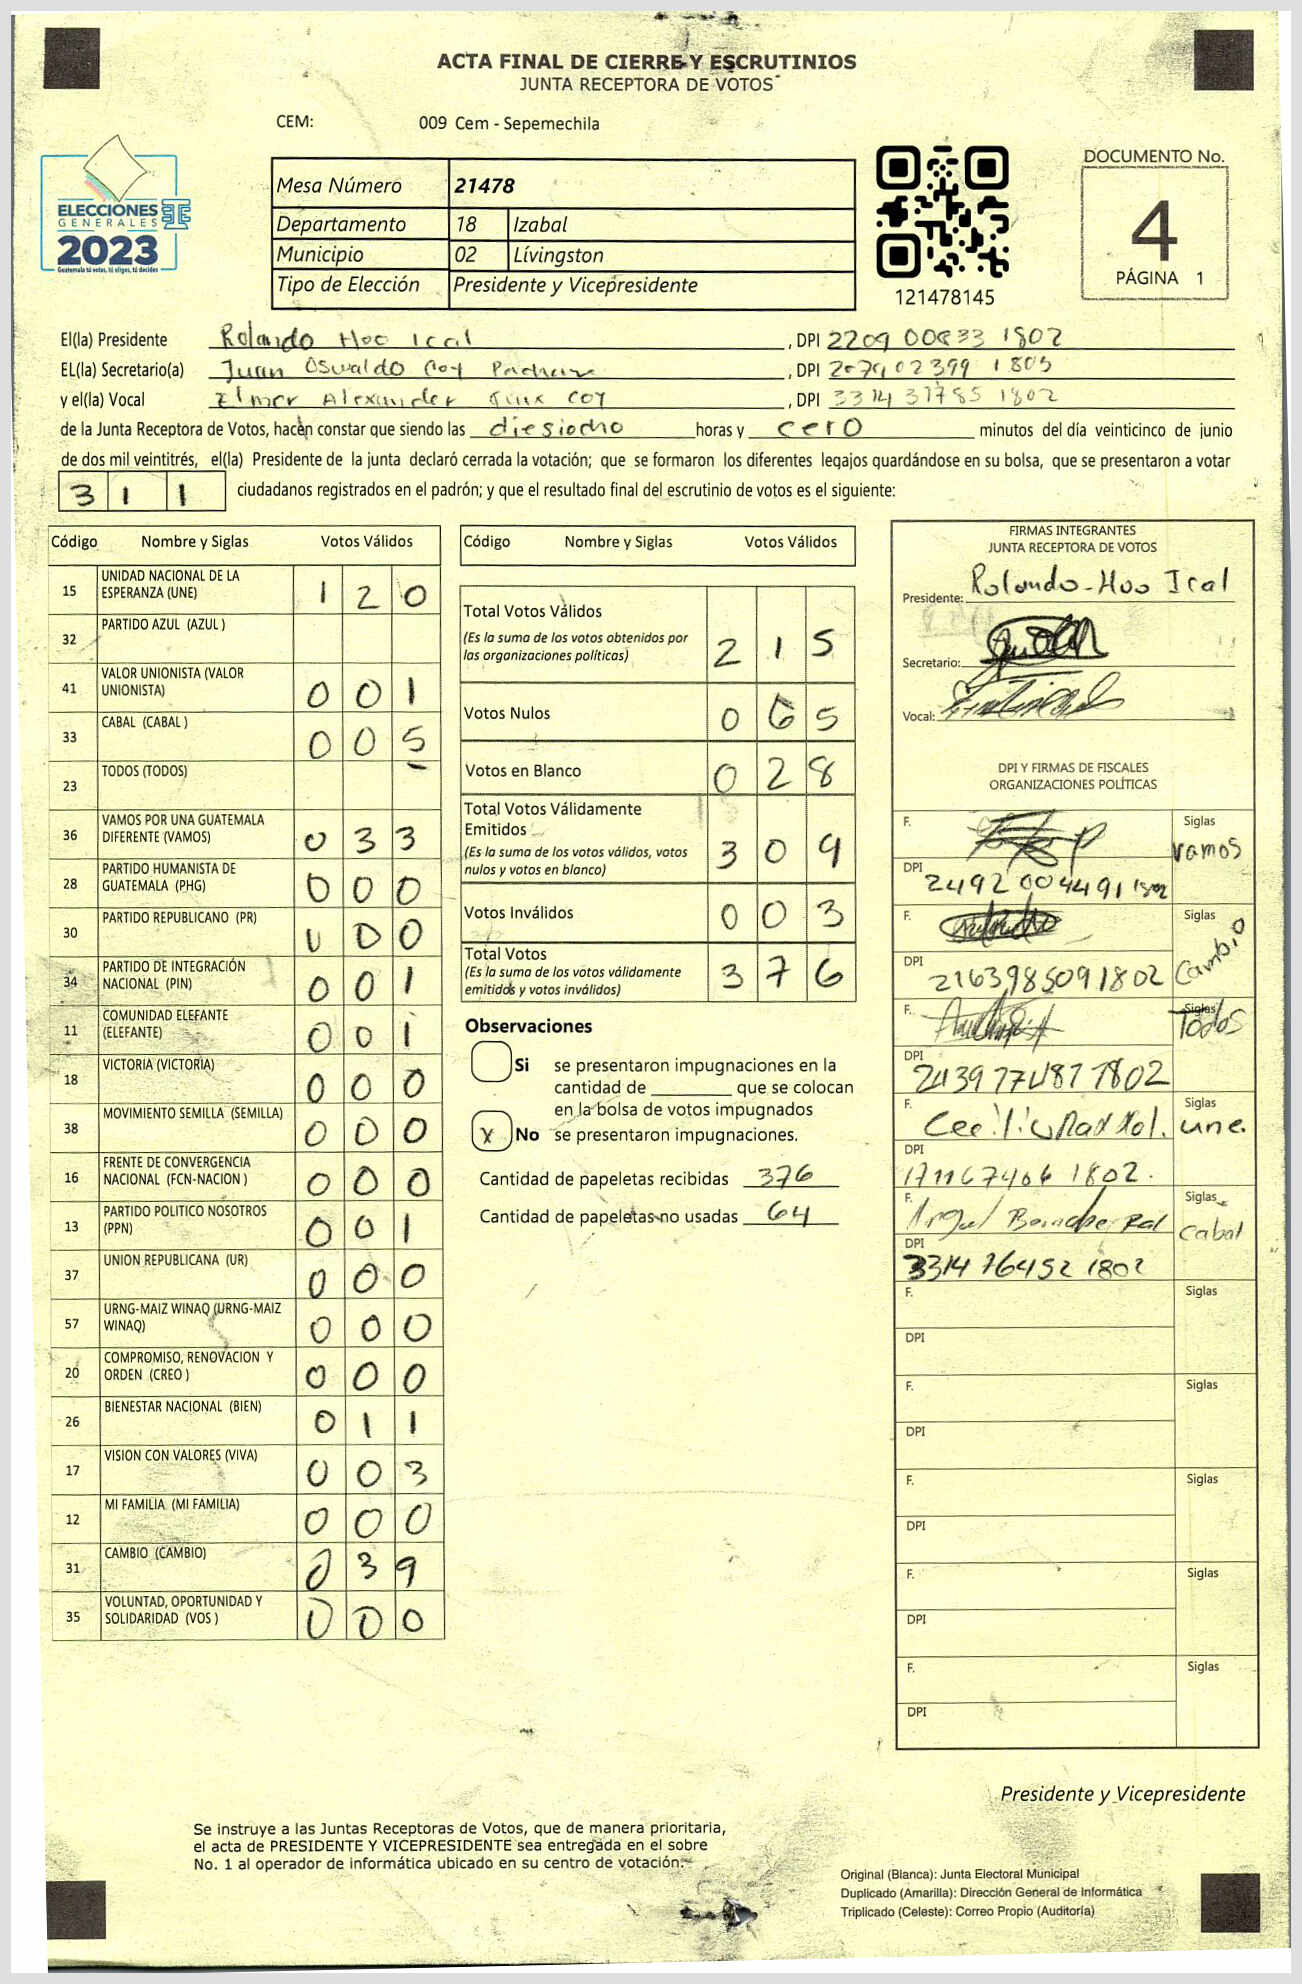 ACTA FINAL DE CIERRE Y ESCRUTINIOS
JUNTA RECEPTORA DE VOTOS
CEM: 009 Cem - Sepemechila
ELECCIONES
GENERALES
2023
Guatemala tú votas, tú eliges, tú decides
Mesa Número 21478
Departamento 18 Izabal
Municipio 02 Lívingston
Tipo de Elección Presidente y Vicepresidente
121478145
DOCUMENTO No.
4
PÁGINA 1
El(la) Presidente Rolando Hoo Ical , DPI 2209 00833 1802
EL(la) Secretario(a) Juan Oswaldo Coy , DPI 2079 02399 1803
y el(la) Vocal Elmer Alexander Coy , DPI 3314 31785 1802
de la Junta Receptora de Votos, hacen constar que siendo las diesiocho horas y cero minutos del día veinticinco de junio
de dos mil veintitrés, el(la) Presidente de la junta declaró cerrada la votación; que se formaron los diferentes legajos guardándose en su bolsa, que se presentaron a votar
311 ciudadanos registrados en el padrón; y que el resultado final del escrutinio de votos es el siguiente:
Código Nombre y Siglas Votos Válidos
15 UNIDAD NACIONAL DE LA ESPERANZA (UNE) 1 2 0
32 PARTIDO AZUL (AZUL )
41 VALOR UNIONISTA (VALOR UNIONISTA) 0 0 1
33 CABAL (CABAL ) 0 0 5
23 TODOS (TODOS)
36 VAMOS POR UNA GUATEMALA DIFERENTE (VAMOS) 0 3 3
28 PARTIDO HUMANISTA DE GUATEMALA (PHG) 0 0 0
30 PARTIDO REPUBLICANO (PR) 0 0 0
34 PARTIDO DE INTEGRACIÓN NACIONAL (PIN) 0 0 1
11 COMUNIDAD ELEFANTE (ELEFANTE) 0 0 1
18 VICTORIA (VICTORIA) 0 0 0
38 MOVIMIENTO SEMILLA (SEMILLA) 0 0 0
16 FRENTE DE CONVERGENCIA NACIONAL (FCN-NACION ) 0 0 0
13 PARTIDO POLITICO NOSOTROS (PPN) 0 0 1
37 UNION REPUBLICANA (UR) 0 0 0
57 URNG-MAIZ WINAQ (URNG-MAIZ WINAQ) 0 0 0
20 COMPROMISO, RENOVACION Y ORDEN (CREO ) 0 0 0
26 BIENESTAR NACIONAL (BIEN) 0 1 1
17 VISION CON VALORES (VIVA) 0 0 3
12 MI FAMILIA (MI FAMILIA) 0 0 0
31 CAMBIO (CAMBIO) 0 3 9
35 VOLUNTAD, OPORTUNIDAD Y SOLIDARIDAD (VOS ) 0 0 0
Código Nombre y Siglas Votos Válidos
Total Votos Válidos 2 1 5
(Es la suma de los votos obtenidos por
las organizaciones políticas)
Votos Nulos 0 6 5
Votos en Blanco 0 2 8
Total Votos Válidamente
Emitidos 3 0 9
(Es la suma de los votos válidos, votos
nulos y votos en blanco)
Votos Inválidos 0 0 3
Total Votos 3 7 6
(Es la suma de los votos válidamente
emitidos y votos inválidos)
Observaciones
Si se presentaron impugnaciones en la
cantidad de ________ que se colocan
en la bolsa de votos impugnados
X No se presentaron impugnaciones.
Cantidad de papeletas recibidas 376
Cantidad de papeletas no usadas 64
FIRMAS INTEGRANTES
JUNTA RECEPTORA DE VOTOS
Presidente: Rolando-Hoo Ical
Secretario:
Vocal:
DPI Y FIRMAS DE FISCALES
ORGANIZACIONES POLÍTICAS
F. Siglas vamos
DPI 2492 00449 1 1802
F. Siglas Cambio
DPI 2163985091802
F. Siglas Todos
DPI 2439774871802
F. Siglas une.
DPI 171167406 1802.
F. Siglas Cabal
DPI 3314 76452 1802
F. Siglas
DPI
F. Siglas
DPI
F. Siglas
DPI
F. Siglas
DPI
F. Siglas
DPI
Presidente y Vicepresidente
Se instruye a las Juntas Receptoras de Votos, que de manera prioritaria,
el acta de PRESIDENTE Y VICEPRESIDENTE sea entregada en el sobre
No. 1 al operador de informática ubicado en su centro de votación.
Original (Blanca): Junta Electoral Municipal
Duplicado (Amarilla): Dirección General de Informática
Triplicado (Celeste): Correo Propio (Auditoría)